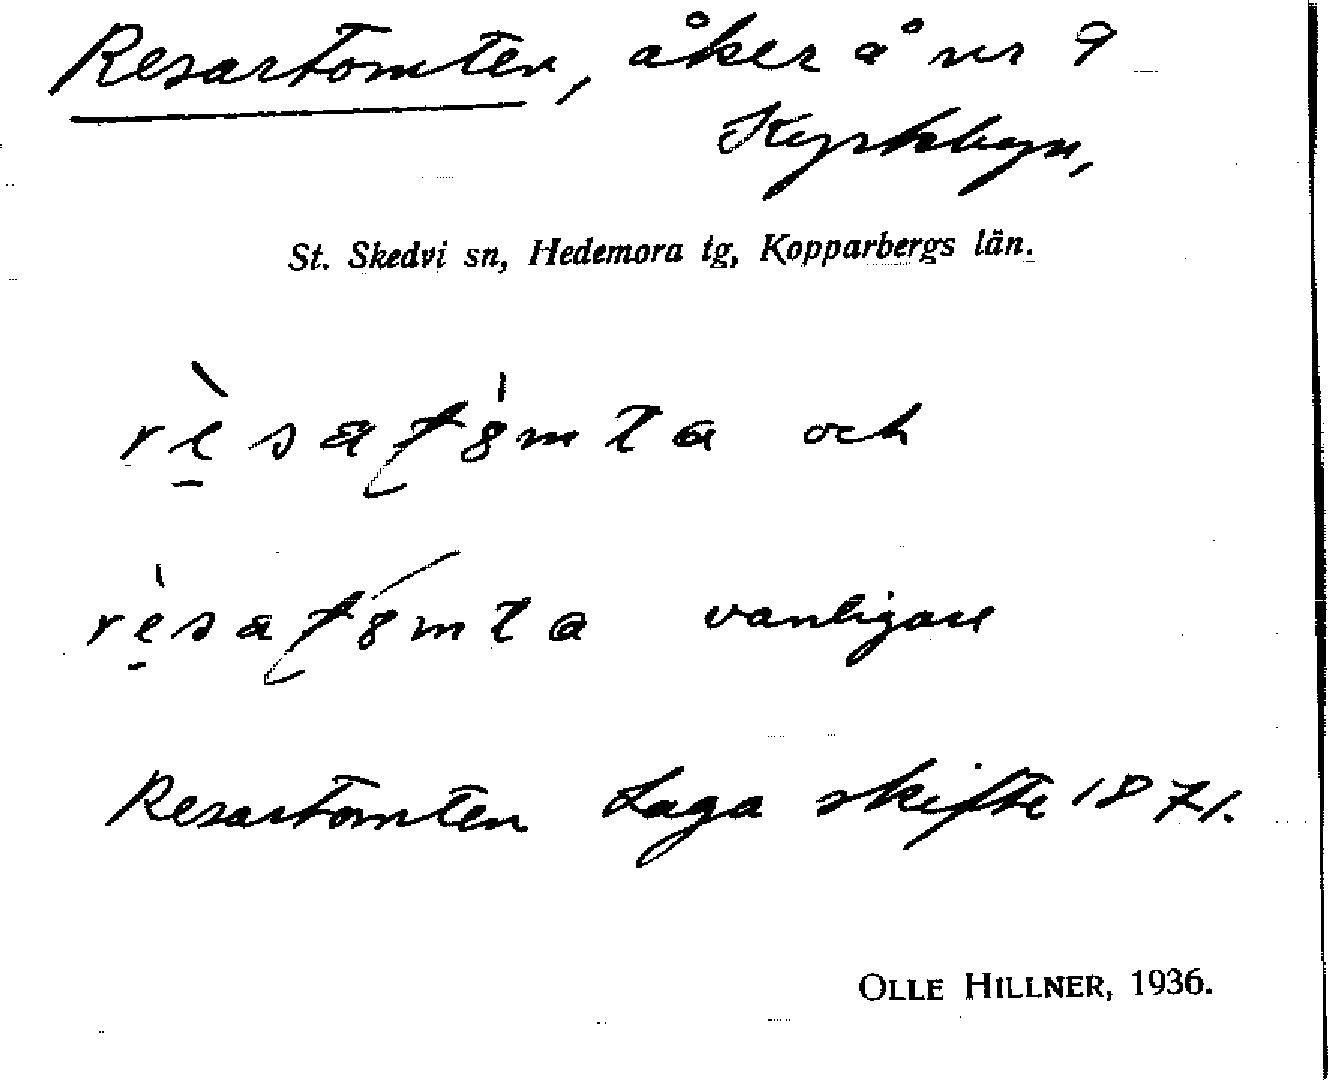 Resartomten, åker å nr 9
Kyrkbyn,
St. Skedvi sn, Hedemora tg, Kopparbergs län.
och
vanligare
Resartomten Laga skifte 1871.
OLLE HILLNER, 1936.